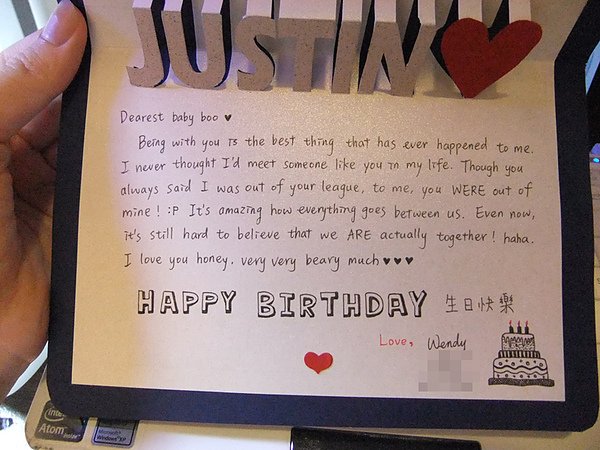 JUSTIN
Dearest baby boo ♥
Being with you is the best thing that has ever happened to me.
I never thought I'd meet someone like you in my life. Though you
always said I was out of your league, to me, you WERE out of
mine! :P It's amazing how everything goes between us. Even now,
it's still hard to believe that we ARE actually together! haha.
I love you honey. very very beary much ♥♥♥
HAPPY BIRTHDAY 生日快樂
Love, Wendy
Atom
Microsoft
Windows XP